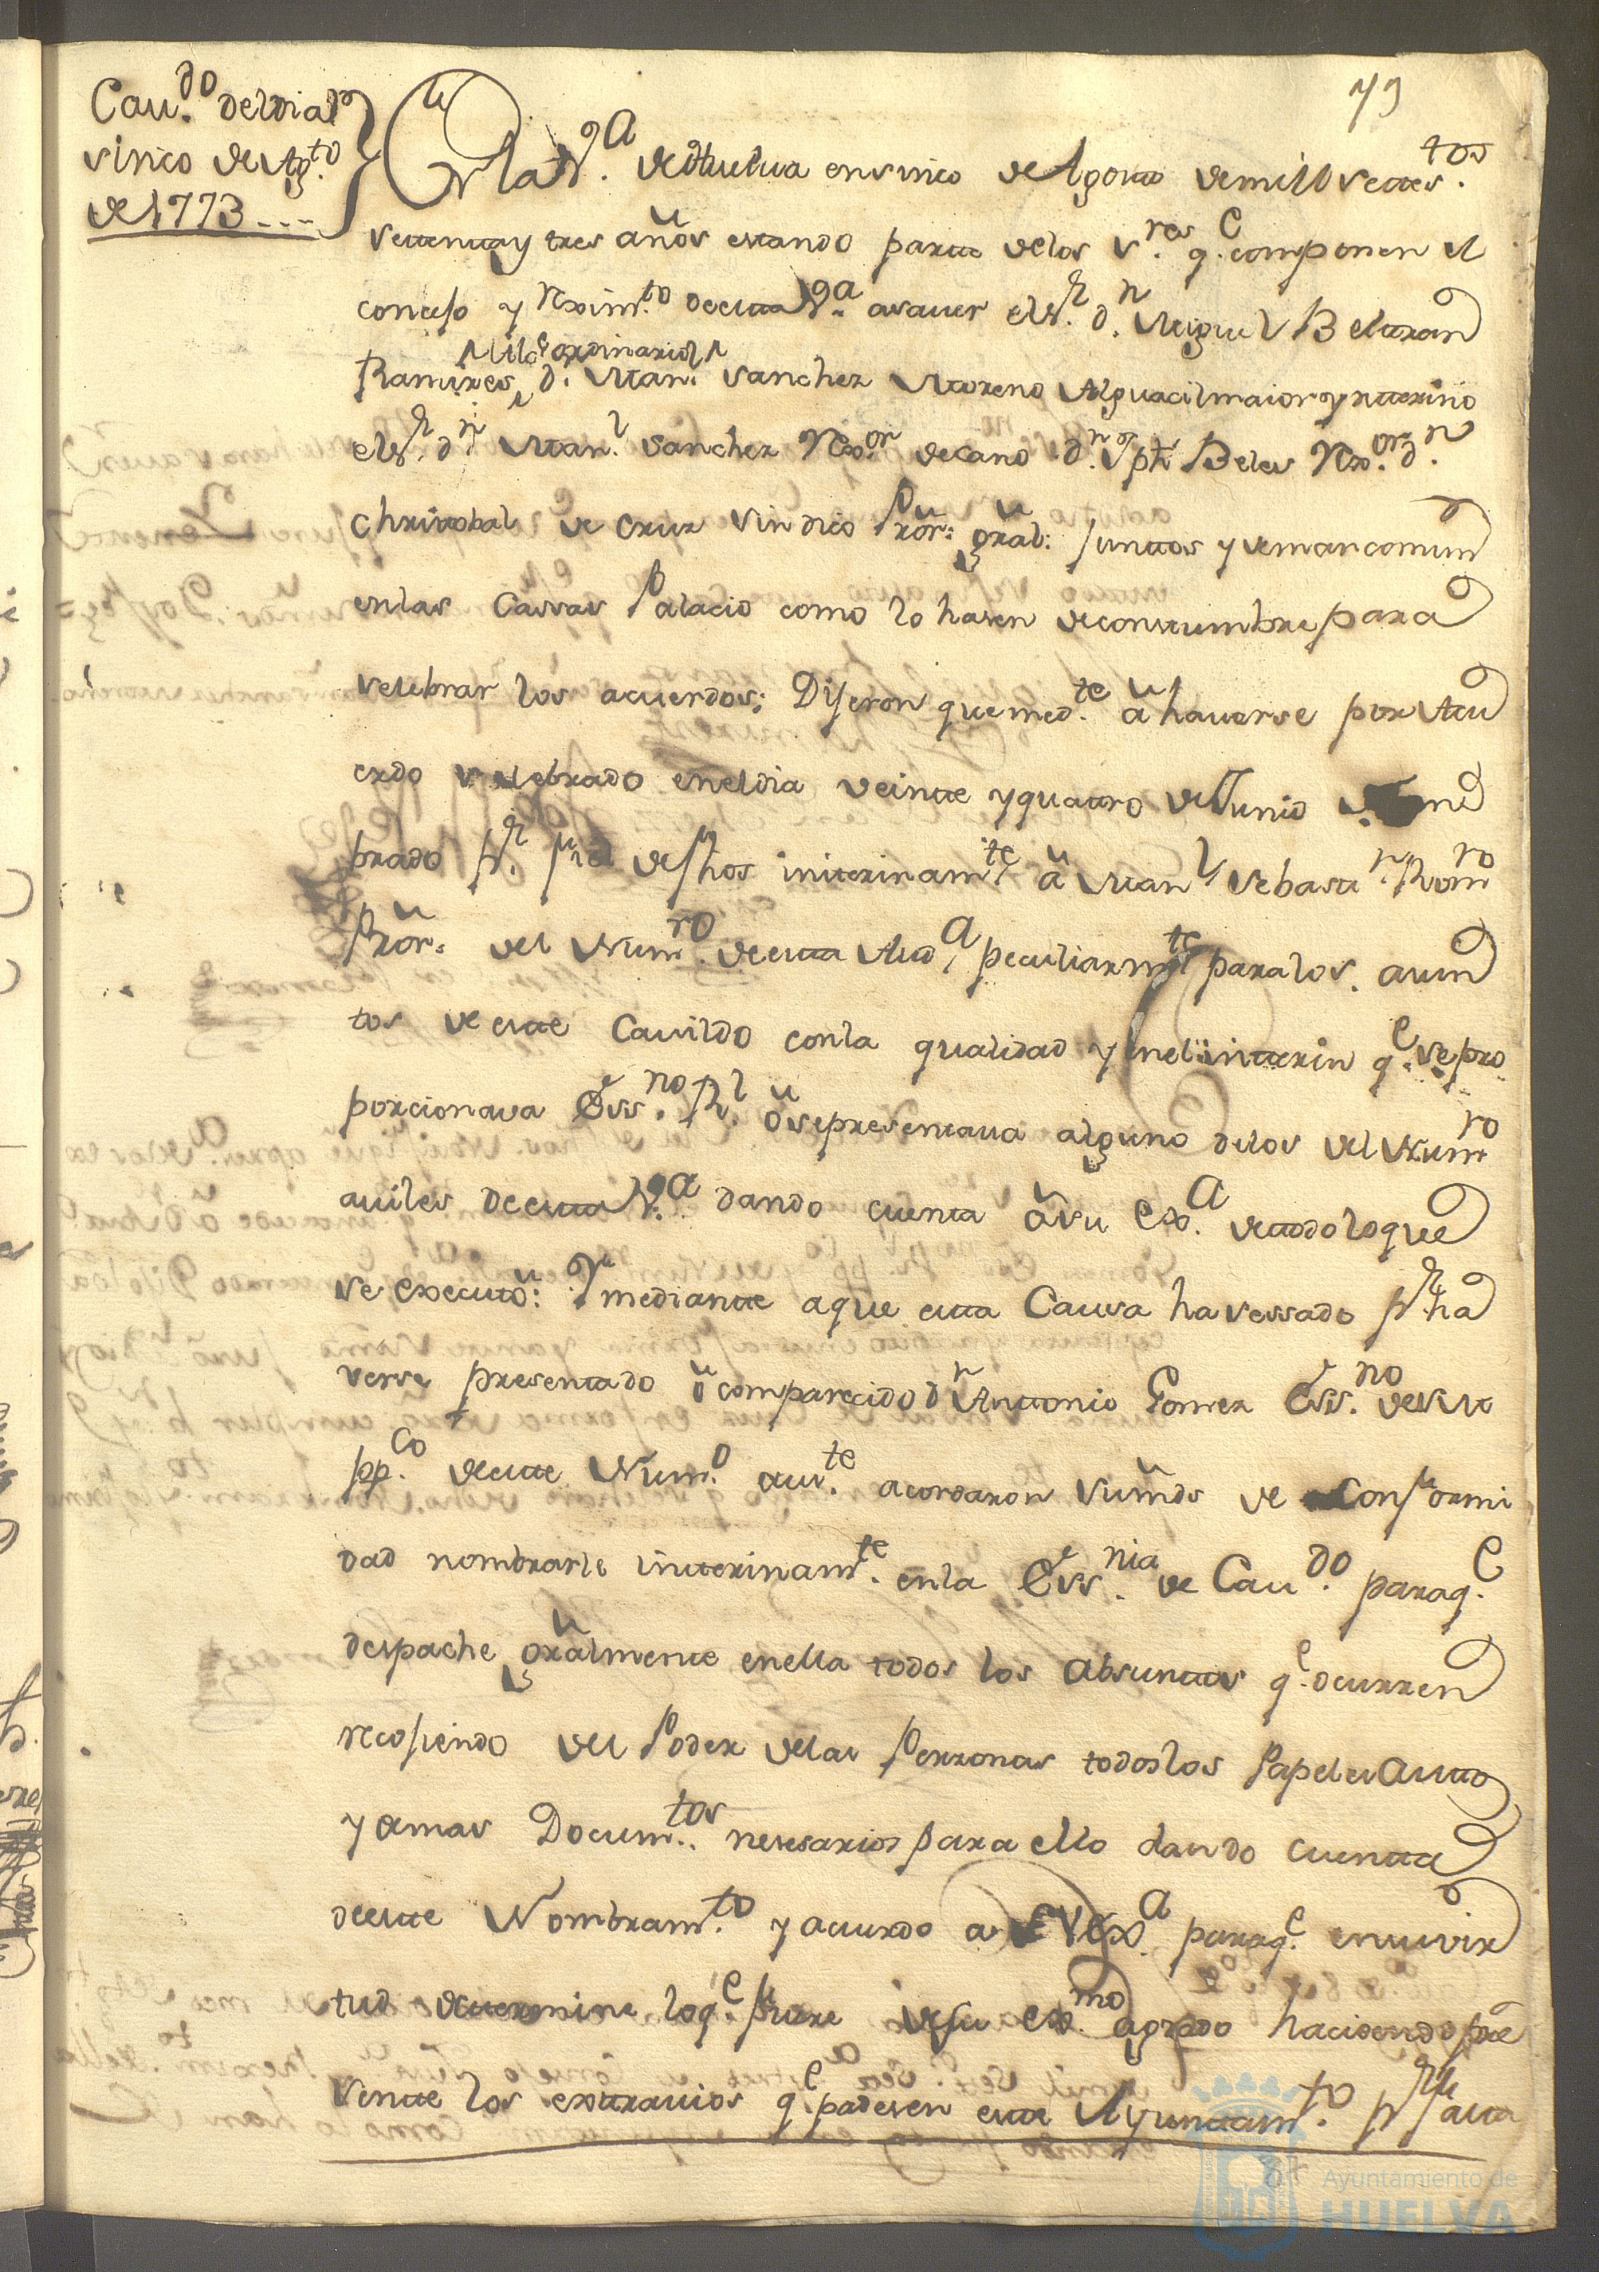 79
Cav.do del dia
sinco de Ag.to
de 1773 ---
En la V.a de Huelva en sinco de Agosto de mill setes.tos
setenta y tres años estando parte de los S.res q.e componen el
consejo y Rexim.to de esta V.a a saver el S.r d.n Miguel Beltran
Alc.e ordinario
Ramires, d.n Man.l Sanchez Moreno Alguacil maior ynterino
el S.r d.n Man.l Sanchez Rex.or decano d.n Jph Beles Rex.or d.n
Christobal de Cruz Sindico Pror. gral. juntos y de mancomun
en las Cassas Palacio como lo hasen de constumbre para
selebrar los acuerdos; Dijeron que med.te a haverse por Acu
erdo selebrado en el dia veinte y quatro de Junio
prado p.r de fhos interinam.te a Man.l Sebast.n Rom.ro
Pror. del Num.ro de esta Aud.a peculiarm.te para los asun
tos de este Cavildo con la qualidad y en el interin q.e se pro
porcionava Ess.no R.l o se presentava alguno de los del Num.ro
aviles de esta V.a dando cuenta a Su Ex.a de todo lo que
se executo: Y mediante a que esta Causa ha sessado p.r ha
verse presentado o comparecido d.n Antonio Gomez Ess.no de S.M.
pp.co de este Num.o aus.te acordaron sus mds de conformi
dad nombrarle interinam.te en la Ess.nia de Cav.do para q.e
despache gralmente en ella todos los absuntos q.e ocurren
recojiendo del Poder de las Perzonas todos los Papeles Auto
y demas Docum.tos nesesarios para ello dando cuenta
de este Nombram.to y acuerdo a S Ex.a para q.e en su vir
tud determine lo q.e fuere de su ex.mo agrado haciendo pre
sente los extravios q.e padesen este Ayuntam.to p.r falta
Ayuntamiento de
HUELVA